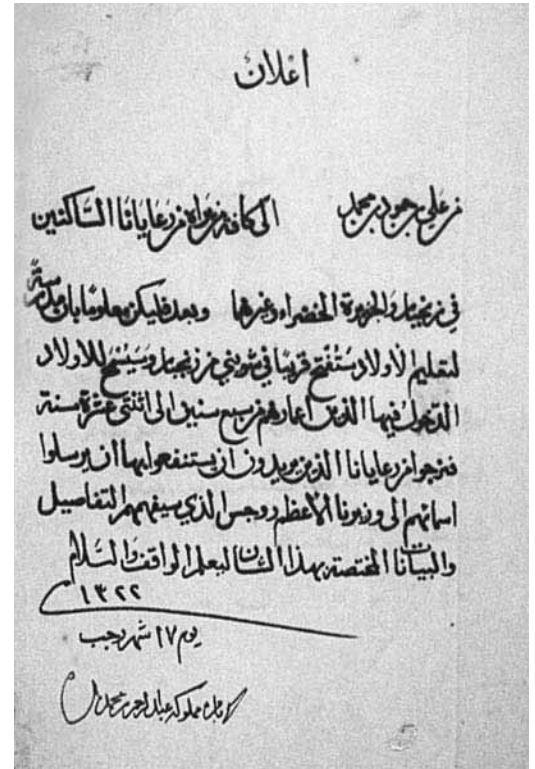 اعلان
من علي بن حمود بن محمد الى كافة من يراه من رعايانا الساكنين
في زنجبار والجزيرة الخضراء وغيرهما وبعد فليكن معلومًا بان مدرسةً
لتعليم الأولاد ستُفتح قريبًا في شويني من زنجبار وسيُسمح للاولاد
الدخول فيها الذين اعمارهم من سبع سنين الى اثنتى عشرة سنة
فنرجو من رعايانا الذين يريدون ان يستنفعوا بها ان يرسلوا
اسمائهم الى وزيرنا الأعظم روجس الذي سيفهمهم التفاصيل
والبيانات المختصة بهذا الشان ليعلم الواقف والسلام
١٣٢٢
يوم ١٧ شهر رجب
مملوكه عبد الرحمن محمد